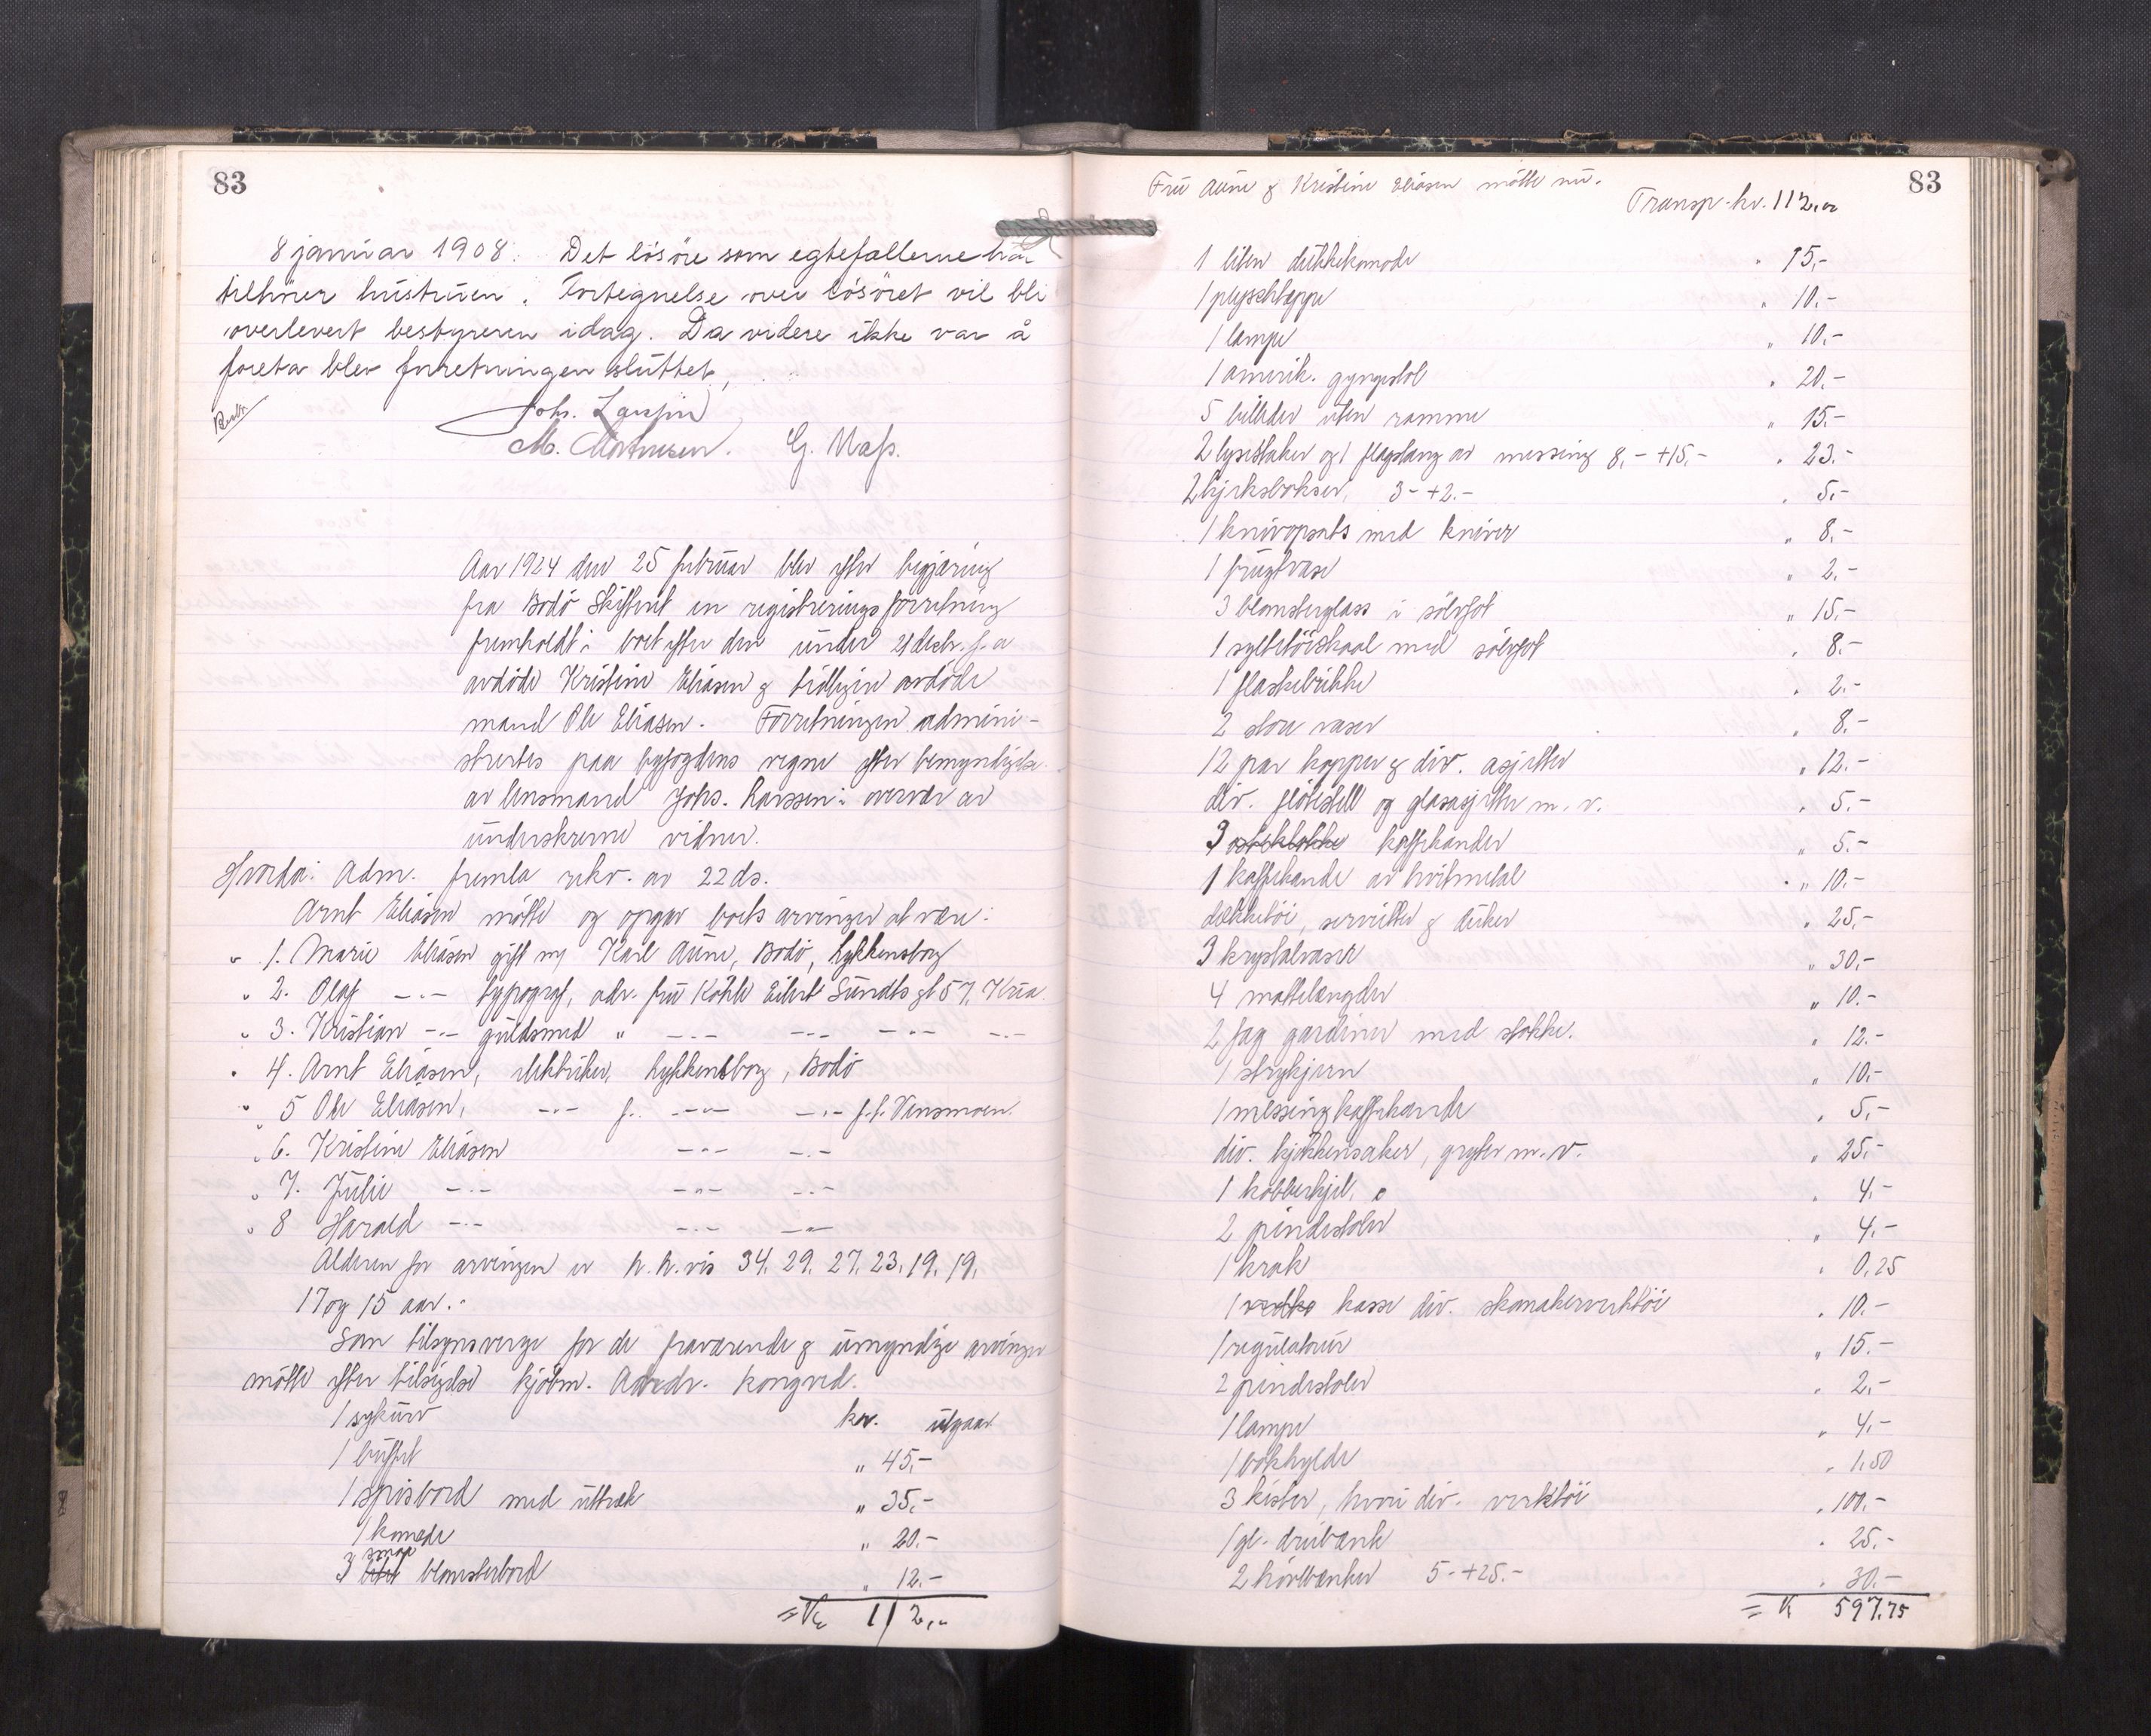 83
8 januar 1908. Det lösöre som egtefællerne har
tilhörer hustruen. Fortegnelse over lösöret vil bli
overlevert bestyreren idag. Da videre ikke var å
foreta blev forretningen sluttet,
Johs. Larssen
M. Mortensen. G. Næss.
Aar 1924 den 25 februar blev efter begjæring
fra Bodö Skifteret en registreringsforretning
fremholdt i boet efter den under 21 decbr. f. a
avdöde Kristine Eliasen & tidligere avdöde
mand Ole Eliasen. Forretningen admini-
strertes paa byfogdens vegne efter bemyndigelse
av lensmand Johs. Larssen i overvær av
underskrevne vidner.
Hvorda: Adm. fremla rekv. av 22 ds.
Arnt Eliasen mötte og opgav boets arvinger at være:
" 1. Marie Eliasen gift m/ Karl Aune, Bodö, Lykkensborg
" 2. Olaf -"- typograf, adr. fru Köhle Eilert Sundts gt 57, Kria
" 3. Kristian -"- guldsmed " -"- -"- -"- -"-
" 4. Arnt Eliasen, elektriker, Lykkensborg, Bodö
" 5 Ole Eliasen, -"- f. -"- -"- f. t. Vensmoen.
" 6. Kristine Eliasen -"- -"-
" 7. Julie -"- -"- -"-
" 8 Harald -"- -"- -"-
Alderen for arvingen er h. h. vis 34, 29, 27, 23, 19, 19,
17 og 15 aar.
Som tilsynsverge for de fraværende & umyndige arvinger
mötte efter tilsigelse kjöbm. Kongsved.
1 sykurv kr. utgaar
1 buffet " 45,-
1 spisbord med uttræk " 35,-
1 komode " 20.-
3 smaa litet blomsterbord " 12.-
= Kr 112,00
83
Fru Aune & Kristine Eliasen mötte nu.
Transp. kr. 112,00
1 liten dukkekomode " 15,-
1 plyschteppe " 10.-
1 lampe " 10.-
1 amerik. gyngestol " 20.-
5 billeder uten ramme " 15.-
2 lysestaker og 1 flagstang av messing 8,- + 15.- " 23.-
2 syrksbokser, 3- + 2.- " 5.-
1 knivopsats med kniver " 8.-
1 frugtvase " 2.-
3 blomsterglass i sölvfot " 15.-
1 syltetöiskaal med sölvfot " 8.-
1 flaskebrikke " 2.-
2 store vaser " 8.-
12 par kopper & div. asjetter " 12.-
div. flötestell og glasasjetter m. v. " 5.-
3 osteklokke kaffekander " 5.-
1 kaffekande av hvitmetal " 10.-
dækketöi, servietter & duker " 25.-
3 krystalvaser " 30.-
4 mattelængder " 10.-
2 fag gardiner med stokke. " 12.-
1 strykjern " 10.-
1 messing kaffekande " 5.-
div. kjökkensaker, gryter m. v. " 25.-
1 kobberkjel, " 4.-
2 pindestoler " 4.-
1 krak " 0,25
1 kasse div. skomakerverktöi " 10.-
1 regulatour " 15.-
2 pindestoler " 2.-
1 lampe " 4.-
1 bokhylde " 1,50
3 kister, hvori div. verktöi " 100.-
1 gl. dreibænk " 25.-
2 hövlbænker 5- + 25.- " 30.-
= K 597.75